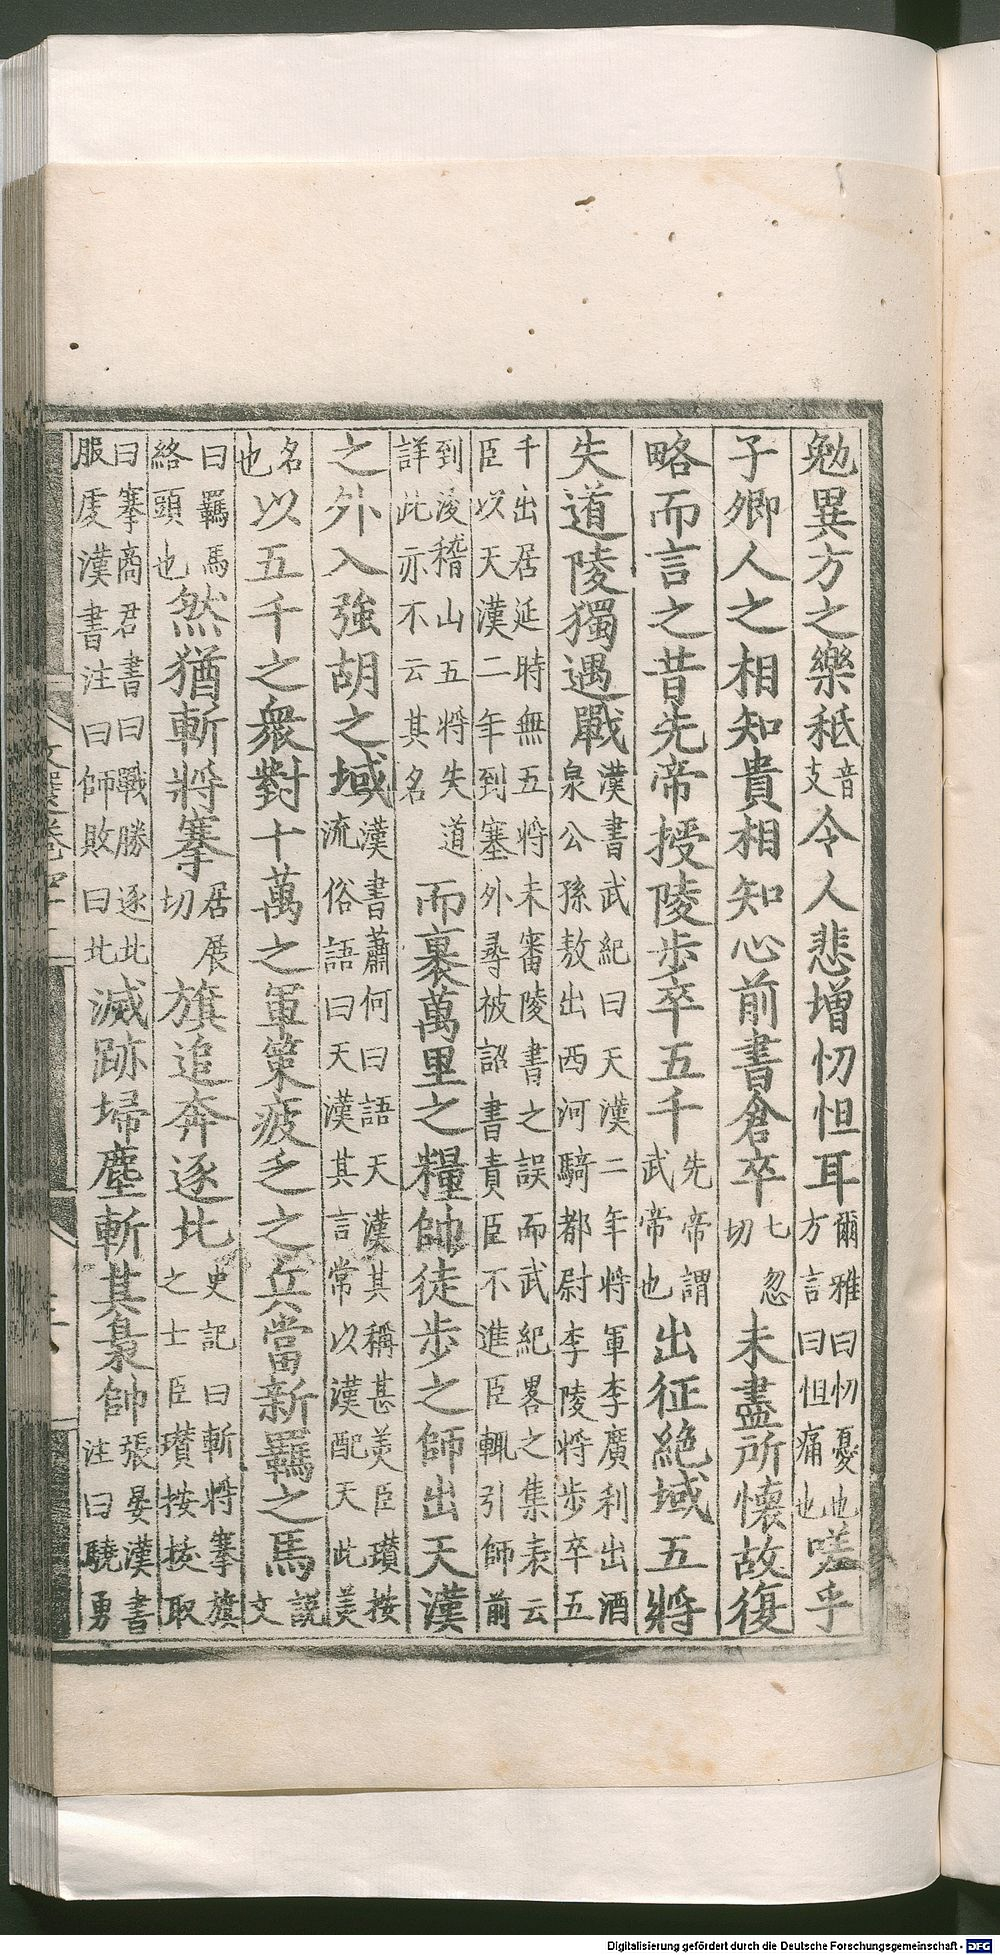 勉異方之樂秪音支令人悲增忉怛耳爾雅曰忉憂也方言曰怛痛也嗟乎
子卿人之相知貴相知心前書倉卒七忽切未盡所懷故復
略而言之昔先帝授陵步卒五千先帝謂武帝也出征絶域五將
失道陵獨遇戰漢書武紀曰天漢二年將軍李廣利出酒泉公孫敖出西河騎都尉李陵將步卒五
千出居延時無五將未審陵書之誤而武紀畧之集表云臣以天漢二年到塞外尋被詔書責臣不進臣輒引師前
到浚稽山五將失道詳此亦不云其名而裹萬里之糧帥徒步之師出天漢
之外入強胡之域漢書蕭何曰語天漢其稱甚美臣瓚按流俗語曰天漢其言常以漢配天此美
名也以五千之衆對十萬之軍策疲乏之兵當新羈之馬說文
曰羈馬絡頭也然猶斬將搴居展切旗追奔逐北史記曰斬將搴旗之士臣瓚按拔取
曰搴商君書曰戰勝逐北服虔漢書注曰師敗曰北滅跡埽塵斬其梟帥張晏漢書注曰驍勇
Digitalisierung gefördert durch die Deutsche Forschungsgemeinschaft - DFG